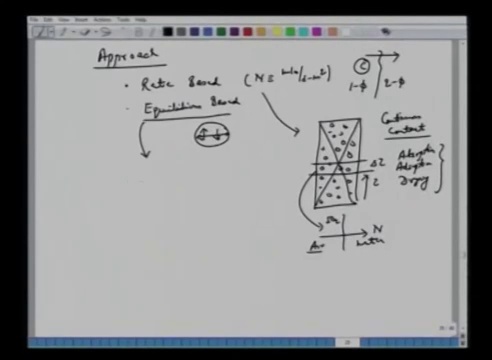 Approach
• Rate Based (N ≡ mole/s-m²)
• Equilibrium Based
C
1-φ 2-φ
Continuous
Contact
Absorption
Adsorption
Drying
ΔZ
Z
SO₂
N
Air
water